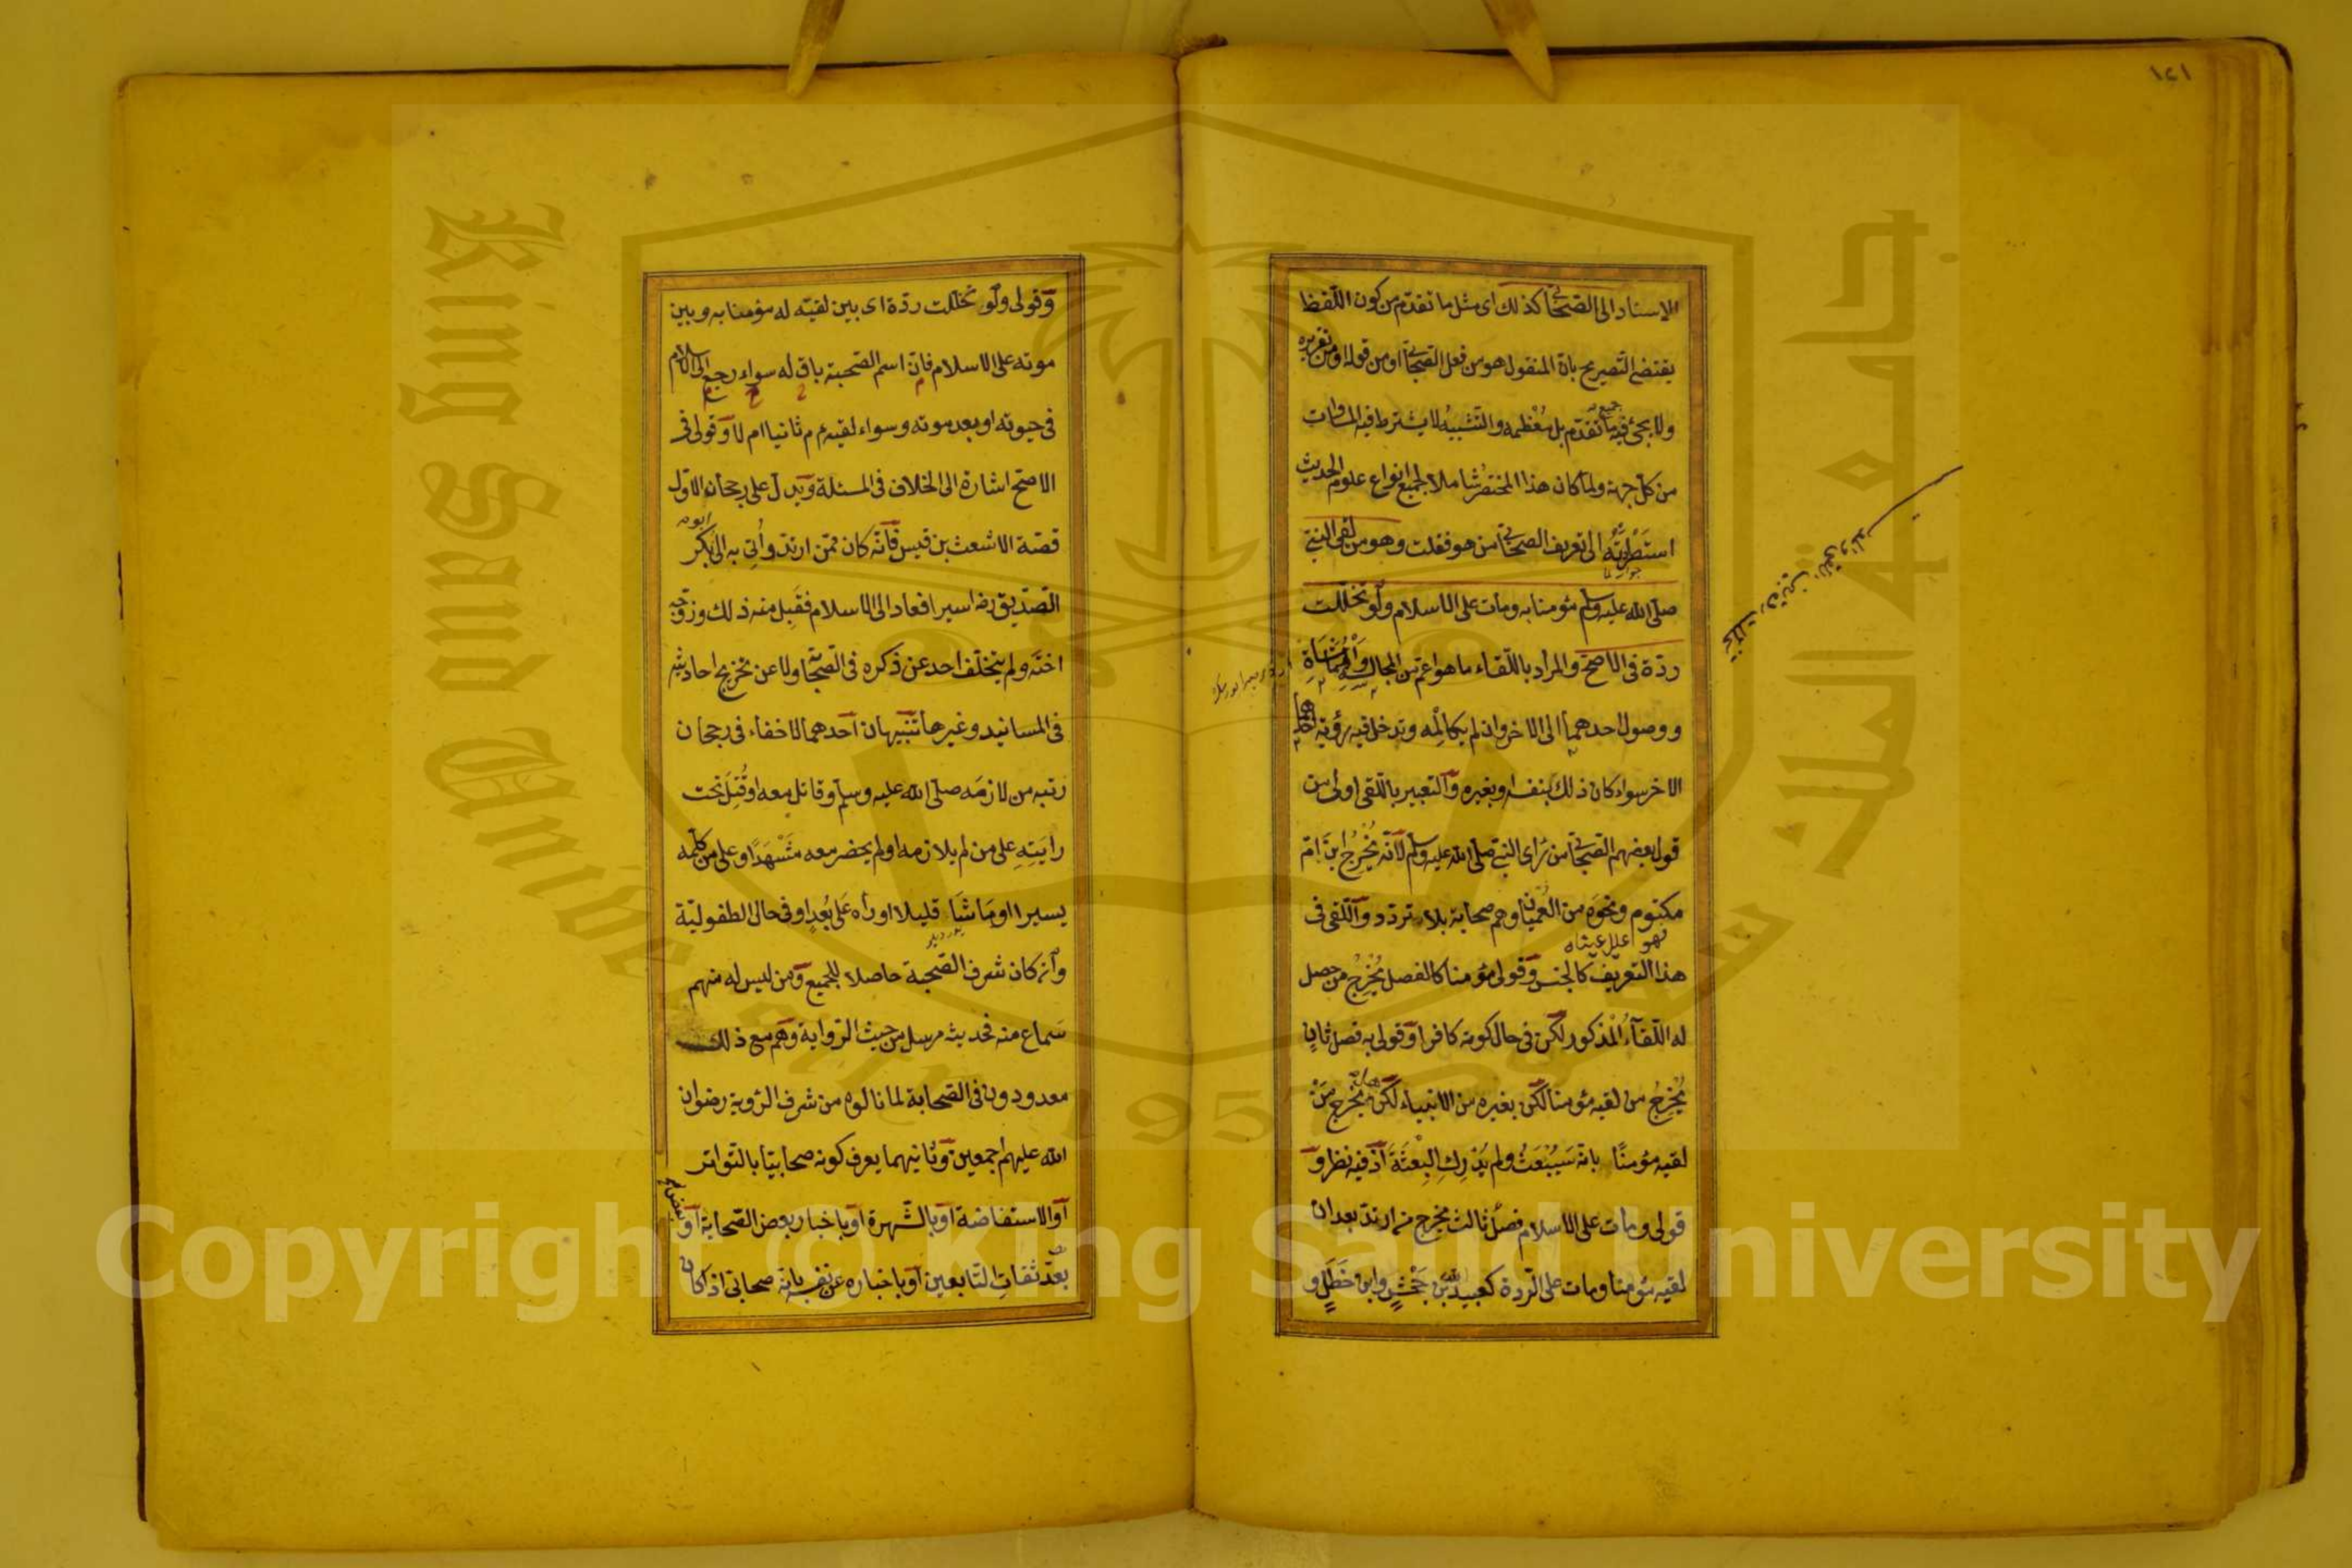 ١٤١
الاسناد الى الصحابى كذلك اى مثل ما تقدم من كون اللفظ
يقتضى التصريح بان المنقول هو من فعل الصحابى او من قوله او من تقريره
ولا يجئ فيه جميع ما تقدم بل مُعْظمه والتشبيهُ لا يشترط فيه المساوات
من كل جهة ولما كان هذا المختصرُ شاملا لجميع انواع علوم الحديث
استَطْردْتُه الى تعريف الصحابى من هو فقلت وهو من لقى النبى
جواب لما
صلى الله عليه وسلم مؤمنا به ومات على الاسلام ولو تخللت
ردّة فى الاصح والمراد باللقاء ما هو اعم من المجالسةِ والْمُمَاشَاةِ
ووصول احدهما الى الاخر وان لم يكالِمْه ويدخل فيه رؤية احدهما
الاخر سواء كان ذلك بنفسه او بغيره والتعبير باللقى اولى من
قول بعضهم الصحابى من رَاى النبى صلى الله عليه وسلم لانه يُخْرِجُ ابنَ امّ
مكتوم ونحوَه من العُمْيان وهم صحابة بلا تردد واللقى فى
هذا التعريف كالجنس وقولى مؤمنا كالفصل يُخْرِجُ من حصل
له اللقآءُ الْمذكور لكن فى حال كونه كافرا وقولى به فصل ثانٍ
يُخْرِجُ من لقيه مؤمنا لكن بغيره من الانبياء لكن هل يُخْرِج مَنْ
لقيه مؤمنًا بانه سَيُبْعَثُ ولم يُدْرِكِ الْبِعْثَةَ اذ فيه نظر و
قولى ومات على الاسلام فصلٌ ثالث يخرج من ارتد بعد ان
لقيه مؤمنا ومات على الردة كعبيد الله بن جَحْشٍ وابن خَطَلٍ و
وقولى ولو تخللت ردة اى بين لقيّه له مؤمنا به وبين
موته على الاسلام فان اسم الصحبة باق له سواء رجع الى الاسلام
فى حيوته او بعد موته وسواء لقيه ثانيا ام لا وقولى فى
الاصح اشارة الى الخلاف فى المسئلة ويدل على رجحان الاول
قصة الاشعث بن قيس فانه كان ممن ارتد واُتِى به الى ابى بكر
الصديق رضـ اسيرا فعاد الى الاسلام فقَبِل منه ذلك وزوّجه
اختَه ولم يتخلّف احد عن ذكره فى الصحابة ولا عن تخريج احاديثه
فى المسانيد وغيرها تنبيهان احدهما لا خفاء فى رجحان
رتبه من لازمَه صلى الله عليه وسلم وقاتل معه او قُتِلَ تحت
رايَتِهِ على من لم يلازمه او لم يحضر معه مَشْهَدًا وعلى من كلّمه
يسيرا او مَاشَا قليلا او رأه عَلى بُعْدٍ او فى حال الطفوليّة
وان كان شرف الصحبة حاصلا للجميع ومن ليس له منهم
سَماع منه فحديثه مرسل من حيث الرواية وهم مع ذلك
معدودون فى الصحابة لما نالوه من شرف الرؤية رضوان
الله عليهم اجمعين وثانيهما يعرف كونه صحابيّا بالتواتر
او الاستفاضة او بالشهرة او باخبار بعض الصحابة او
بعض ثقات التابعين او باخباره عن نفسه بانه صحابى اذ كان
Copyright © King Saud University
King Saud University
جامعة الملك سعود
1957